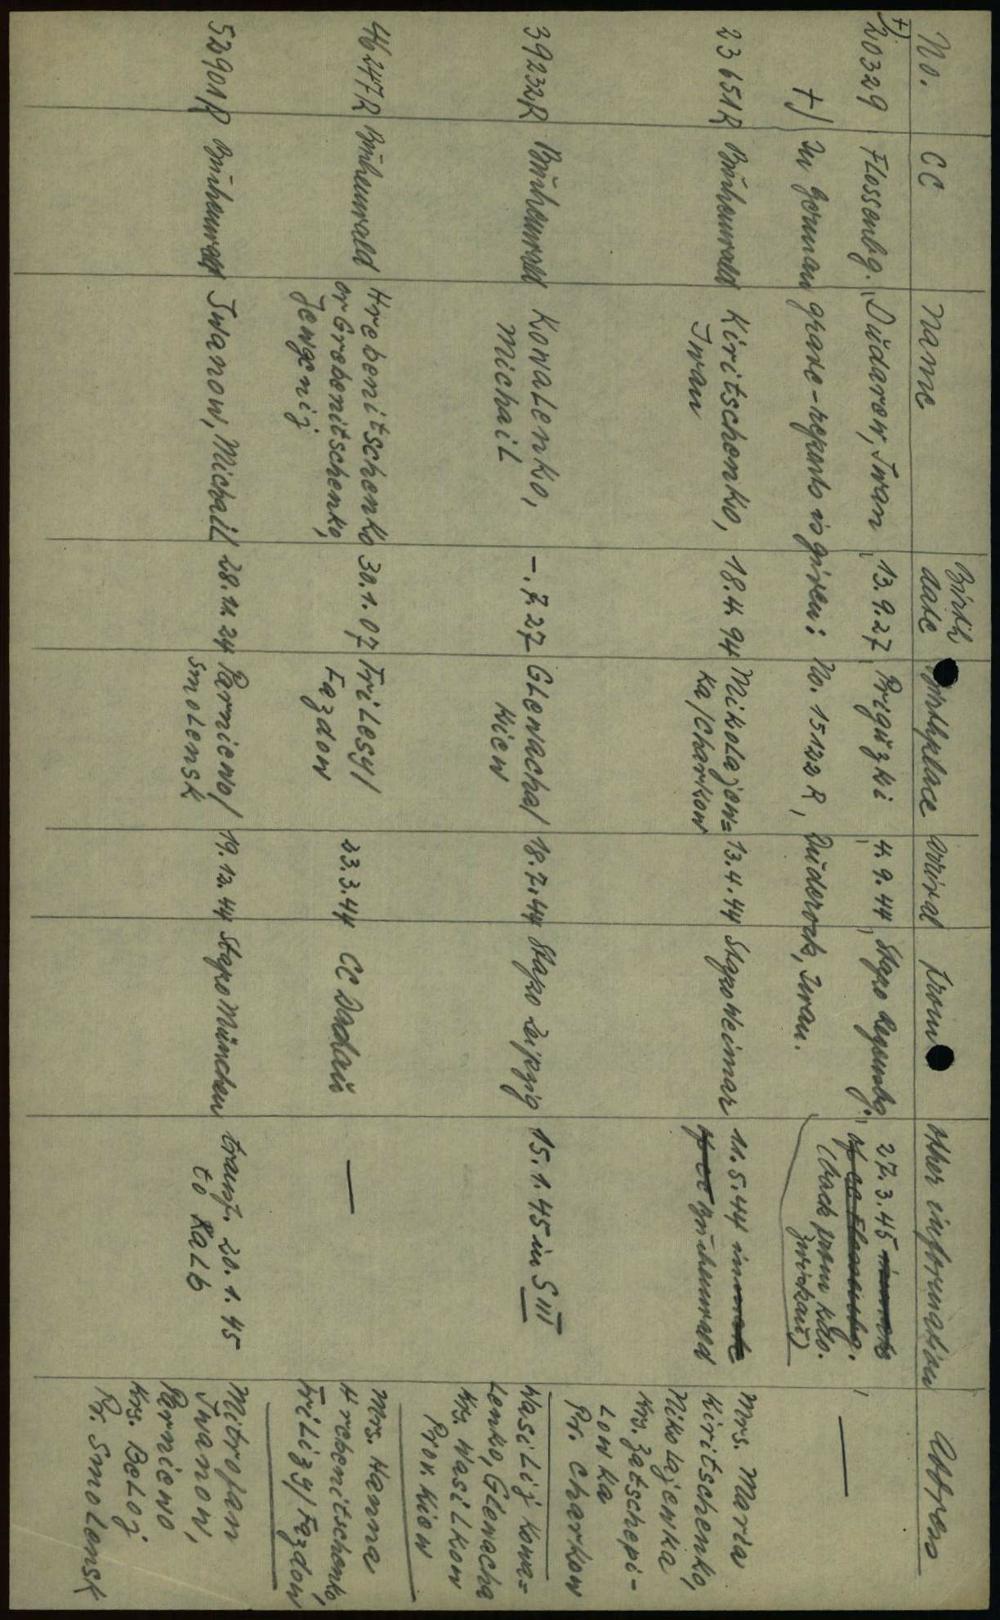 No. CC Name Birth date Birthplace arrival from other information Address
+) 20329 Flossenbg. Dŭdarow, Iwan 13.9.27 Prigŭzki 4.9.44 Stapo Regensbg. 27.3.45
(back from Kdo.
Zwickaŭ)
—
+) In German grave-reports is given: No. 15122 R, Dŭdorock, Iwan.
23651R Bŭchenwald Kiritschenko,
Iwan
18.4.94 Mikolajow=
ka/Charkow
13.4.44 Stapo Weimar 11.5.44
Bŭchenwald
Mrs. Maria
Kiritschenko,
Nikolajewka
Krs. Satschepi-
Lowka
Pr. Charkow
39232R Bŭchenwald Kowalenko,
Michail
-.7.27 Glewacha/
Kiew
18.7.44 Stapo Leipzig 15.1.45 in S III
Wasilij Kowa=
lenko, Glewacha
Krs. Wasilkow
Prov. Kiew
46247R Bŭchenwald Hrebenitschenko
or Grebenitschenko,
Jewgenij
30.1.07 Trilesy/
Fazdow
23.3.44 CC Dachaŭ —
Mrs. Hanna
Hrebenitschenko,
Trilizy/Fazdow
52901R Bŭchenwald Iwanow, Michail 28.11.24 Parniewo/
Smolensk
19.12.44 Stapo München transf. 20.1.45
to Kalb
Mitrofan
Iwanow,
Parniewo
Krs. Beloj
Pr. Smolensk